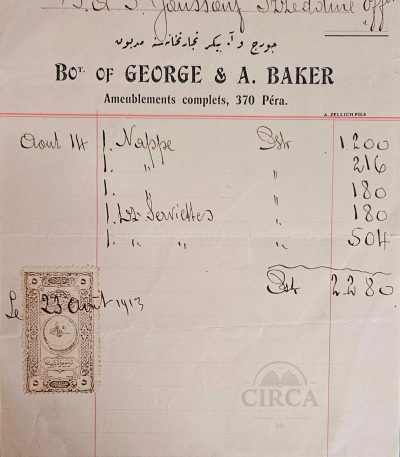 S. A. I. Youssouf Izzeddine Effen
جورج و آ. بیکر تجارتخانه‌سنه مدیون
BOT. OF GEORGE & A. BAKER
Ameublements complets, 370 Péra.
A. ZELLICH FILS
Aout 14 1. Nappe Pstr 1200
1. " " 216
1. " " 180
1. Dz Serviettes " 180
1. " " " 504
Pstr 2.280
Le 23 Août 1913
CIRCA